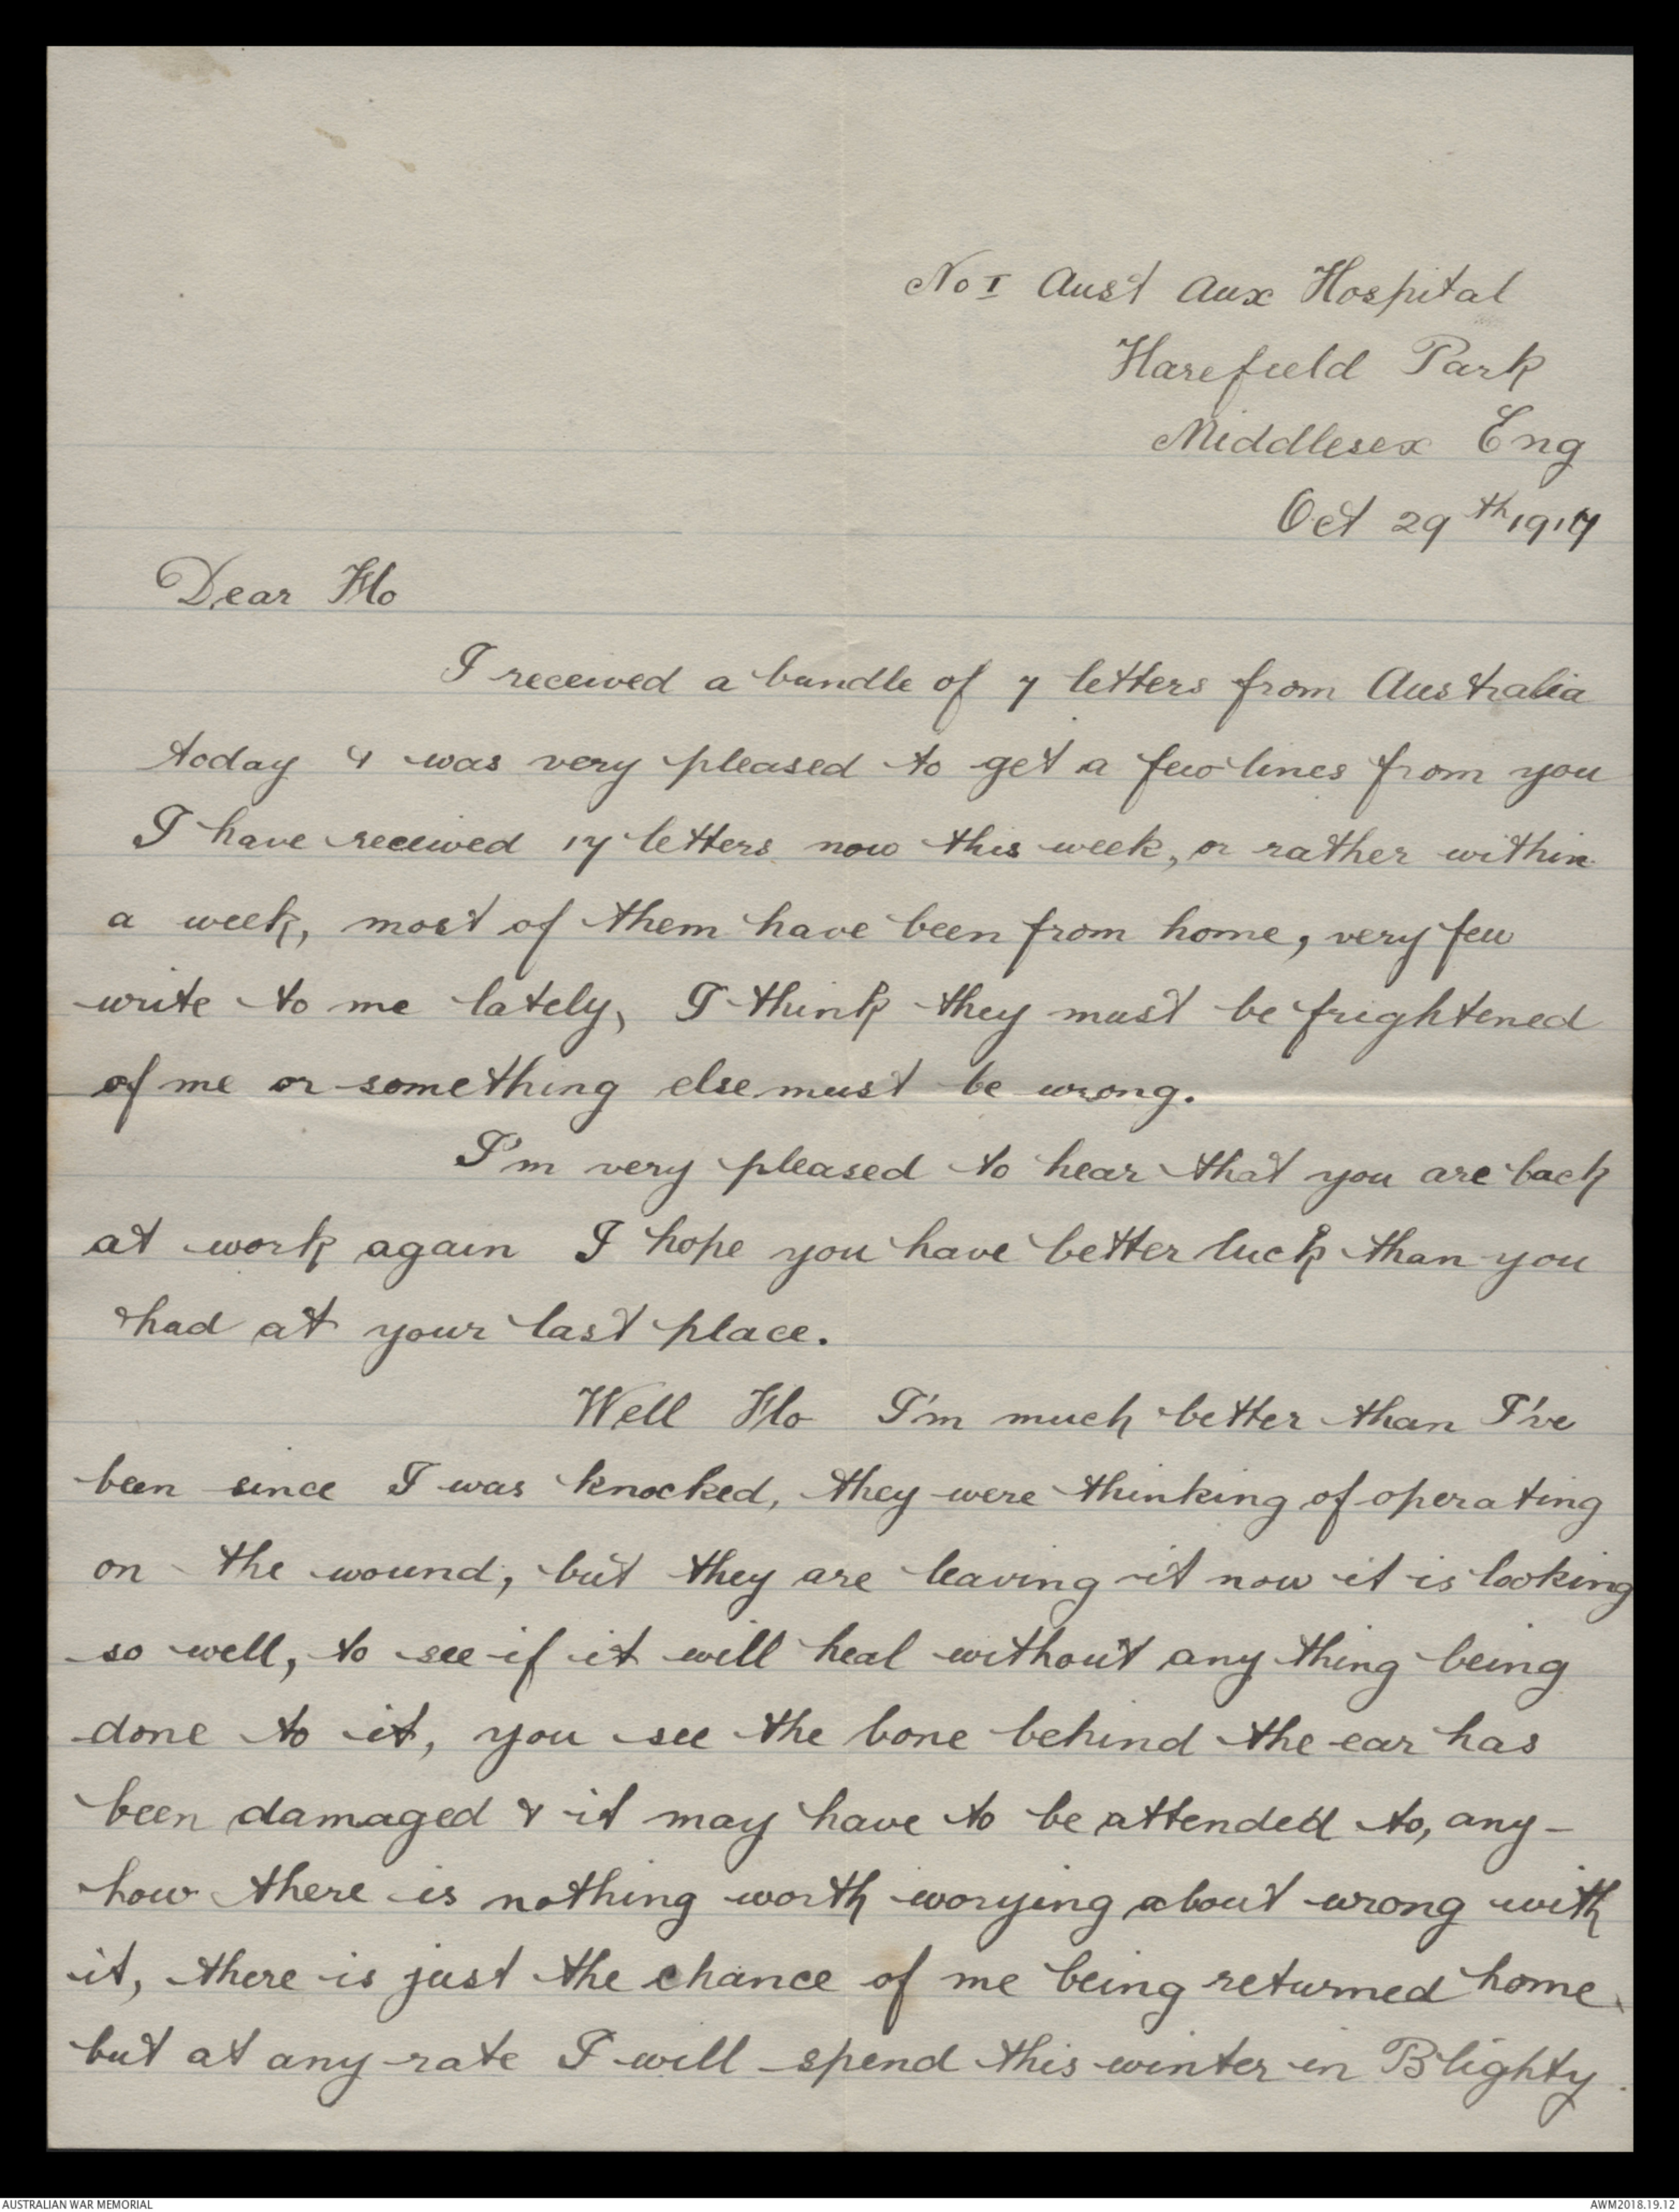 No I Aust Aux Hospital
Harefield Park
Middlesex Eng
Oct 29th 1917
Dear Flo
I received a bundle of 7 letters from Australia
today & was very pleased to get a few lines from you
I have received 17 letters now this week, or rather within
a week, most of them have been from home, very few
write to me lately, I think they must be frightened
of me or something else must be wrong.
I'm very pleased to hear that you are back
at work again I hope you have better luck than you
had at your last place.
Well Flo I'm much better than I've
been since I was knocked, they were thinking of operating
on the wound, but they are leaving it now it is looking
so well, to see if it will heal without any thing being
done to it, you see the bone behind the ear has
been damaged & it may have to be attended to, any-
how there is nothing worth worying about wrong with
it, there is just the chance of me being returned home
but at any rate I will spend this winter in Blighty.
AUSTRALIAN WAR MEMORIAL
AWM2018.19.12